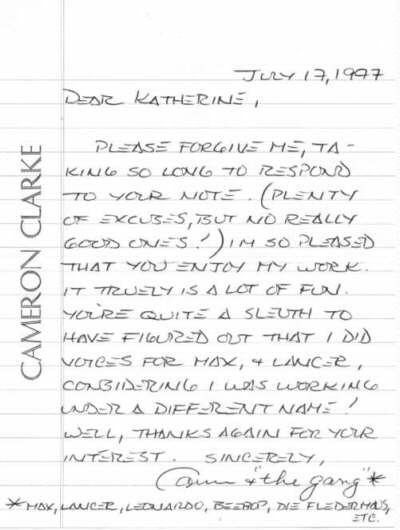 JULY 17, 1997
DEAR KATHERINE,
PLEASE FORGIVE ME, TA-
KING SO LONG TO RESPOND
TO YOUR NOTE. (PLENTY
OF EXCUSES, BUT NO REALLY
GOOD ONES!) IM SO PLEASED
THAT YOU ENJOY MY WORK.
IT TRUELY IS A LOT OF FUN.
YOU'RE QUITE A SLEUTH TO
HAVE FIGURED OUT THAT I DID
VOICES FOR MAX, & LANCER,
CONSIDERING I WAS WORKING
UNDER A DIFFERENT NAME!
WELL, THANKS AGAIN FOR YOUR
INTEREST. SINCERELY,
Cam & "the gang"*
*MAX, LANCER, LEONARDO, BEEBOP, DIE FLEDERMAUS,
ETC.
CAMERON CLARKE